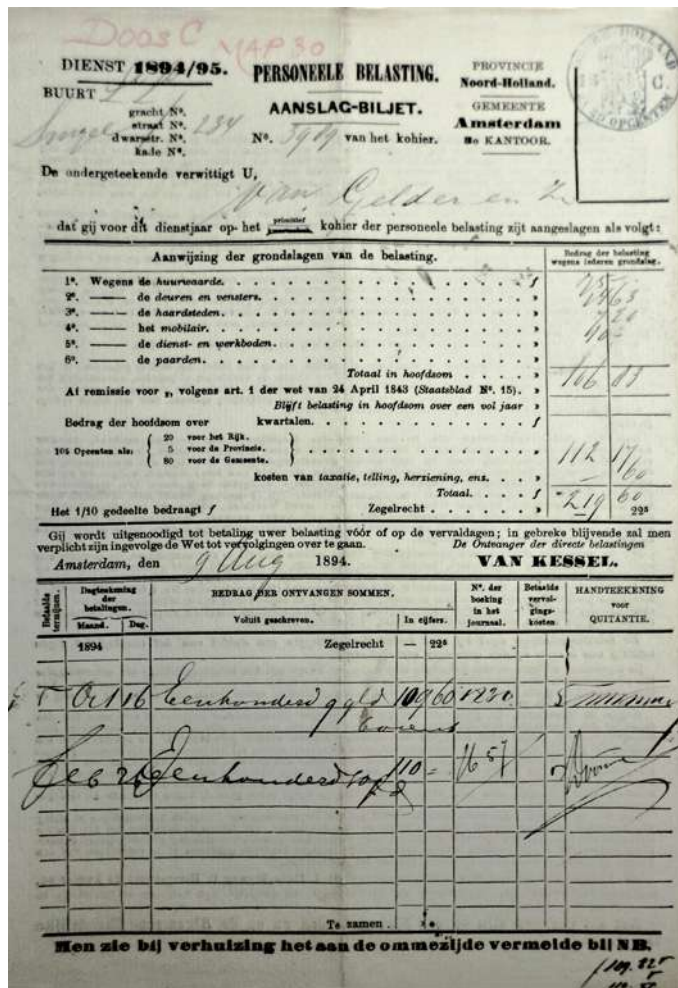 Doos C MAP 30
DIENST 1894/95.
BUURT
gracht Nº.
Singel straat Nº. 234
dwarsstr. Nº.
kade Nº.
PERSONEELE BELASTING.
AANSLAG-BILJET.
Nº. 3909 van het kohier.
PROVINCIE
Noord-Holland.
GEMEENTE
Amsterdam
KANTOOR.
De ondergeteekende verwittigt U,
van Gelder en Z
dat gij voor dit dienstjaar op het primitief kohier der personeele belasting zijt aangeslagen als volgt:
Aanwijzing der grondslagen van de belasting.
Bedrag der belasting
wegens iederen grondslag.
1º. Wegens de huurwaarde. f
2º. —— de deuren en vensters. »
3º. —— de haardsteden. »
4º. —— het mobilair. »
5º. —— de dienst- en werkboden. »
6º. —— de paarden. »
Totaal in hoofdsom » 106 83
Af remissie voor , volgens art. 1 der wet van 24 April 1843 (Staatsblad Nº. 15). »
Blijft belasting in hoofdsom over een vol jaar »
Bedrag der hoofdsom over kwartalen. f
105 Opcenten als: { 20 voor het Rijk.
5 voor de Provincie.
80 voor de Gemeente. } 112 17
kosten van taxatie, telling, herziening, enz. » – 60
Totaal. f 219 60
Het 1/10 gedeelte bedraagt f Zegelrecht » 22⁵
Gij wordt uitgenoodigd tot betaling uwer belasting vóór of op de vervaldagen; in gebreke blijvende zal men
verplicht zijn ingevolge de Wet tot vervolgingen over te gaan. De Ontvanger der directe belastingen
Amsterdam, den 9 Aug 1894. VAN KESSEL.
Betaalde termijnen.
Dagteekening
der
betalingen.
Maand. Dag.
BEDRAG DER ONTVANGEN SOMMEN.
Voluit geschreven. In cijfers.
Nº. der
boeking
in het
journaal.
Betaalde
vervol-
gings-
kosten.
HANDTEEKENING
voor
QUITANTIE.
1894 Zegelrecht — 22⁵
5 Oct 16 Eenhonderd 9 gld 109 60 1220 5
Feb 26 Eenhonderd 110 = 1657
Te zamen
Men zie bij verhuizing het aan de ommezijde vermelde bij NB.
109.82⁵